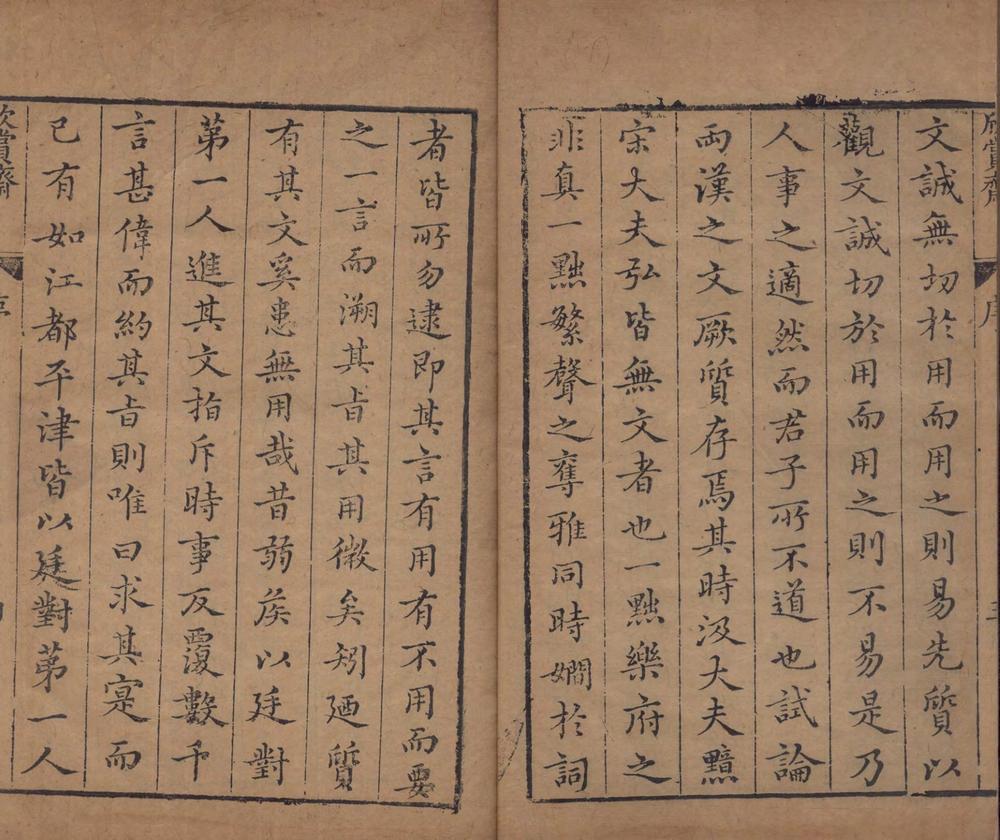 欣賞齋
序
文誠無切於用而用之則易先質以
觀文誠切於用而用之則不易是乃
人事之適然而君子所不道也試論
兩漢之文厥質存焉其時汲大夫黯
宋大夫弘皆無文者也一黜樂府之
非真一黜繁聲之奪雅同時嫺於詞
者皆所勿逮即其言有用有不用而要
之一言而溯其旨其用微矣矧廼質
有其文奚患無用哉昔弱矦以廷對
第一人進其文指斥時事反覆數千
言甚偉而約其旨則唯曰求其寔而
已有如江都平津皆以廷對第一人
欣賞齋